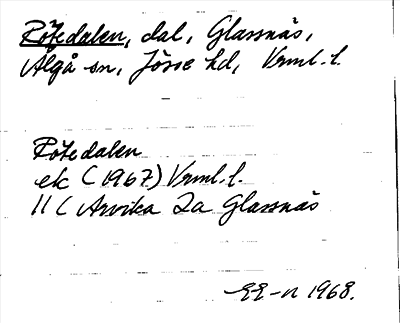 Rötedalen, dal, Glassnäs,
Älgå sn, Jösse hd, Vrml. l.
Rötedalen
ek (1967) Vrml. l.
11 C Arvika 2a Glassnäs
1968.